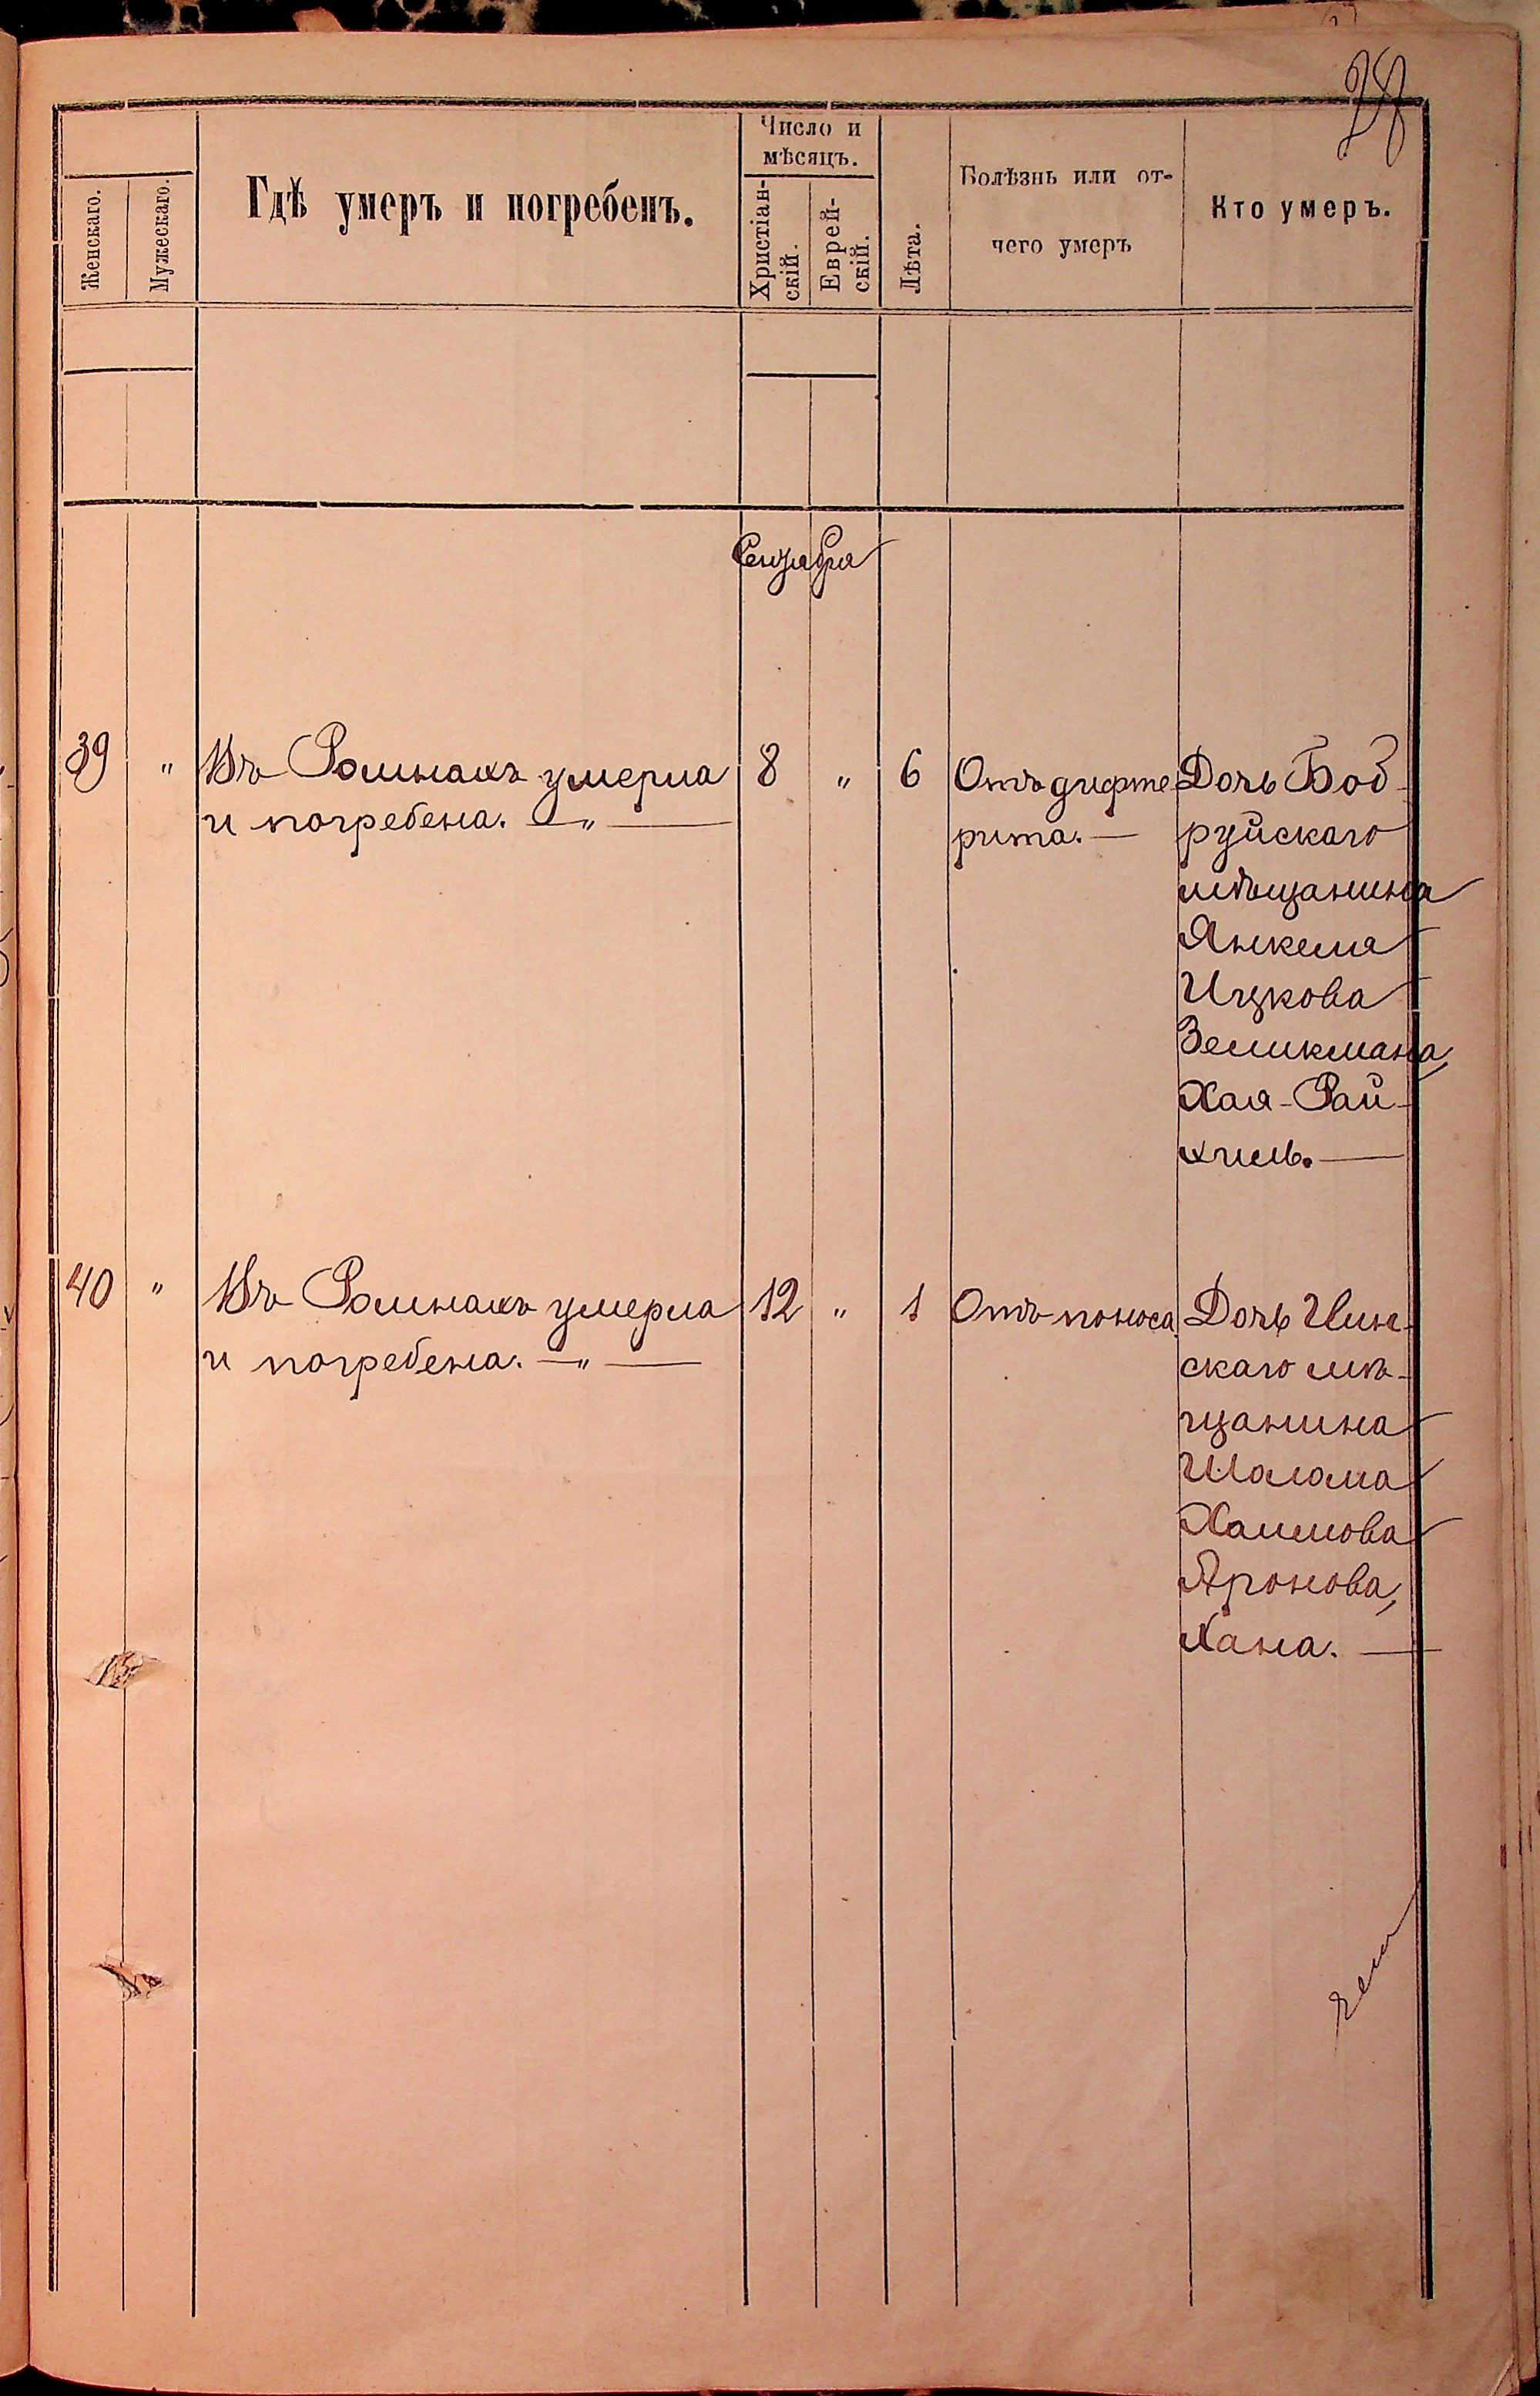 28
Женскаго.
Мужескаго.
Гдѣ умеръ и погребенъ.
Число и
мѣсяцъ.
Христіан-
скій.
Еврей-
скій.
Лѣта.
Болѣзнь или от-
чего умеръ
Кто умеръ.
Сентября
39 " Въ Ромнахъ умерла 8 " 6 Отъ дифте Дочь Боб-
и погребена. —"— рита.— руйскаго
мѣщанина
Янкеля
Ицкова
Зеликмана,
Хая-Рай-
хиль.—
40 " Въ Ромнахъ умерла 12 " 1 Отъ поноса. Дочь
и погребена. —"— скаго мѣ-
щанина
Шолома
Хаимова
Аронова,
Хана.—